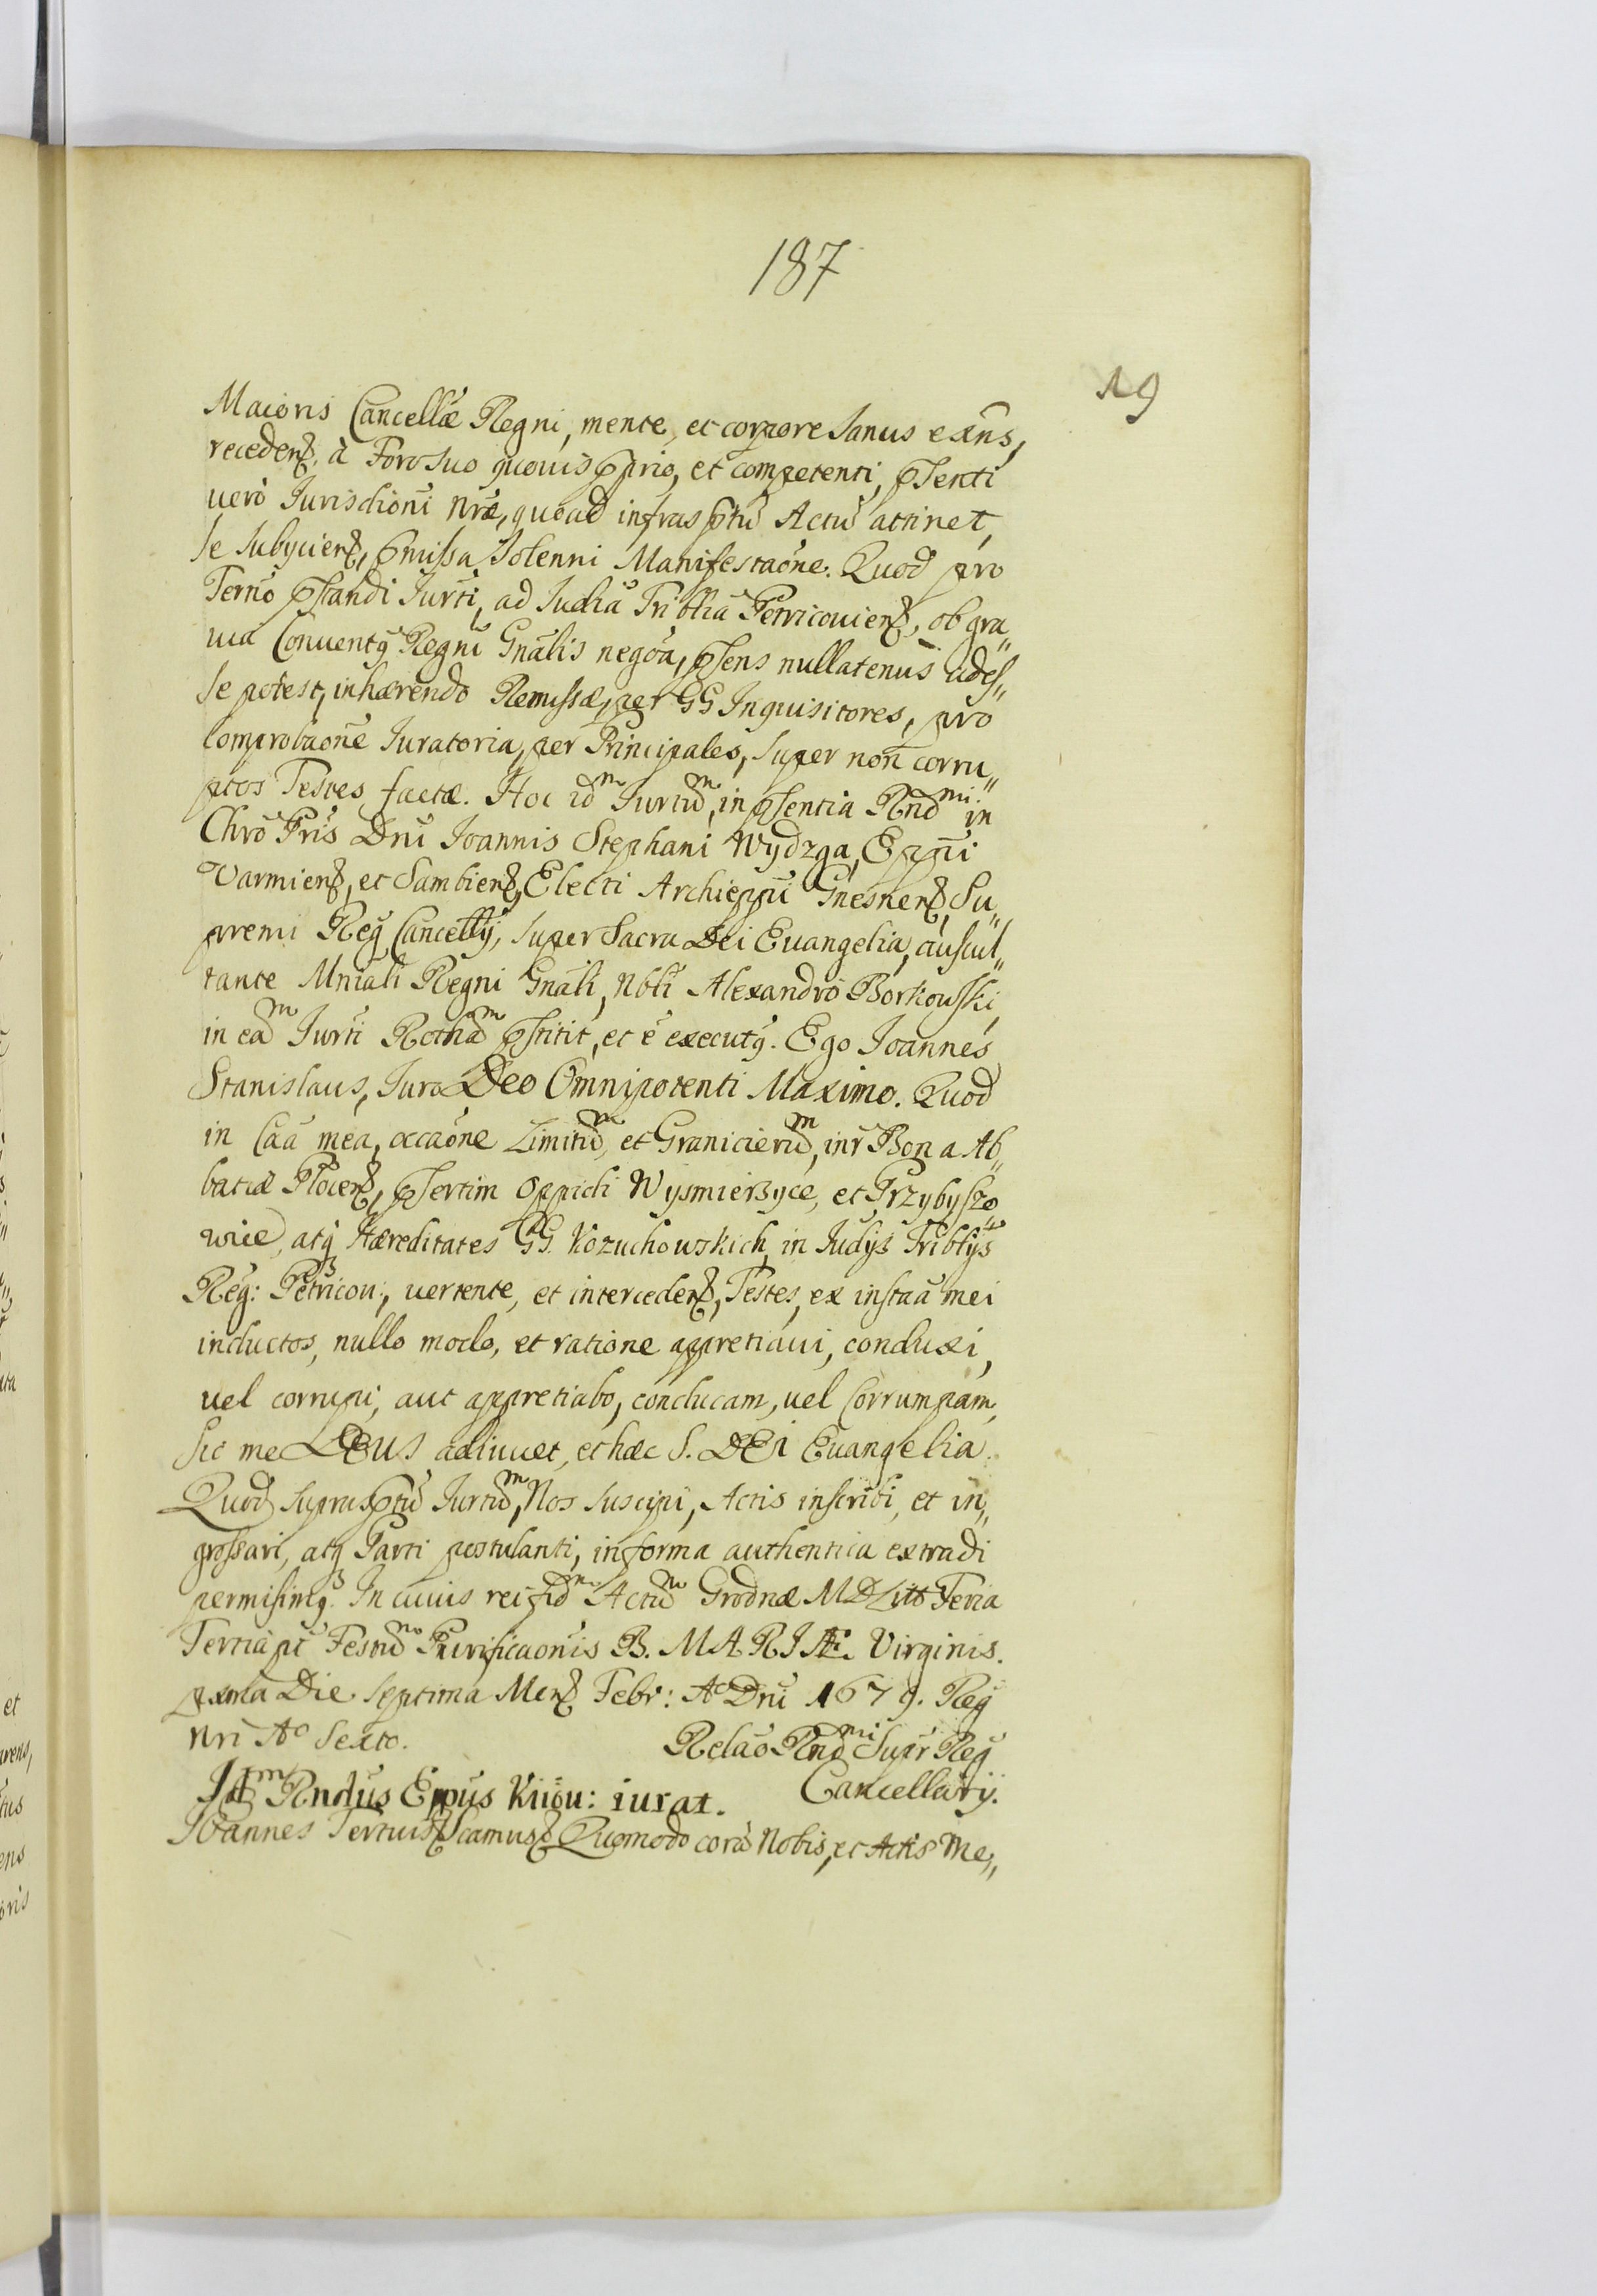 187
19
Maioris Cancellæ Regni, mente, et corpore sanus exñs,
recedenʒ, à Foro suo quouis ꝓprio, et competenti, p̃senti
uerò Jurisdictioni nr̃æ, quoad infrasp̃tũ Actũ attinet,
se subijcienʒ, p̃missa solenni Manifestaõne. Quod pro
Termõ p̃standi Jurti, ad Judia Triblĩa Petricouienʒ, ob gra„
uia Conventꝯ Regni Gnãlis negõa, p̃sens nullatenus ades„
se potest, inhærendo Remissæ, per GG Inquisitores, pro
Comprobaõne Juratoria, per Principales, super non corru„
ptos Testes, factæ. Hoc idᵐ Jurtũᵐ, in p̃sentia Rndᵐⁱ in
Chrõ Pr̃is Dnĩ Joannis Stephani Wydzga, Eppĩ
Varmienʒ, et Sambienʒ, Electi Archieppĩ Gnesnenʒ, Su„
premi Reg̃ Cancellij, super Sacra Dei Euangelia, auscul„
tante Mniãli Regni Gnãli, Nobli Alexandro Borkowski,
in eadᵐ Jurti Rothaᵐ p̃stitit, et ẽ executꝯ. Ego Joannes
Stanislaus, Juro Deo Omnipotenti Maximo. Quod
in Caã mea, occaõne Limitũᵐ, et Granicierũᵐ, intr̃ Bona Ab„
batiæ Plocenʒ, p̃sertim Oppidi Wysmierzyce, et Przybyszo„
wice, atqʒ Hæreditates GG. Kozuchowskich, in Judijs Triblijs
Reg: Petricou:, uertente, et intercedenʒ, Testes, ex instaã mei
inductos, nullo modo, et ratione appretiaui, conduxi,
uel corrupi, aut appretiabo, conducam, uel Corrumpam,
sic me DEUS adiuuet, et hæc S. DEI Euangelia.
Quod suprasp̃tũ Jurtũᵐ, Nos suscipi, Actis inscribi, et in„
grossari, atqʒ Parti postulanti, in forma authentica extradi
permisimꝯ. In cuius rei fidᵐ Actũᵐ Grodnæ Feria
Tertia p̃t Festũᵐ Purificaõnis B. MARIÆ. Virginis.
pxma Die Septima Menʒ Febr: Aº Dnĩ 1679. Reg̃
Nri Aº Sexto.
Relaõ Rndᵐⁱ Supr Reg̃
Cancellarij.
Idᵐ Rndus Eppus Kiiou: iurat.
Joannes Tertiusʒ camusʒ Quomodo corã Nobis, et Actis Me„